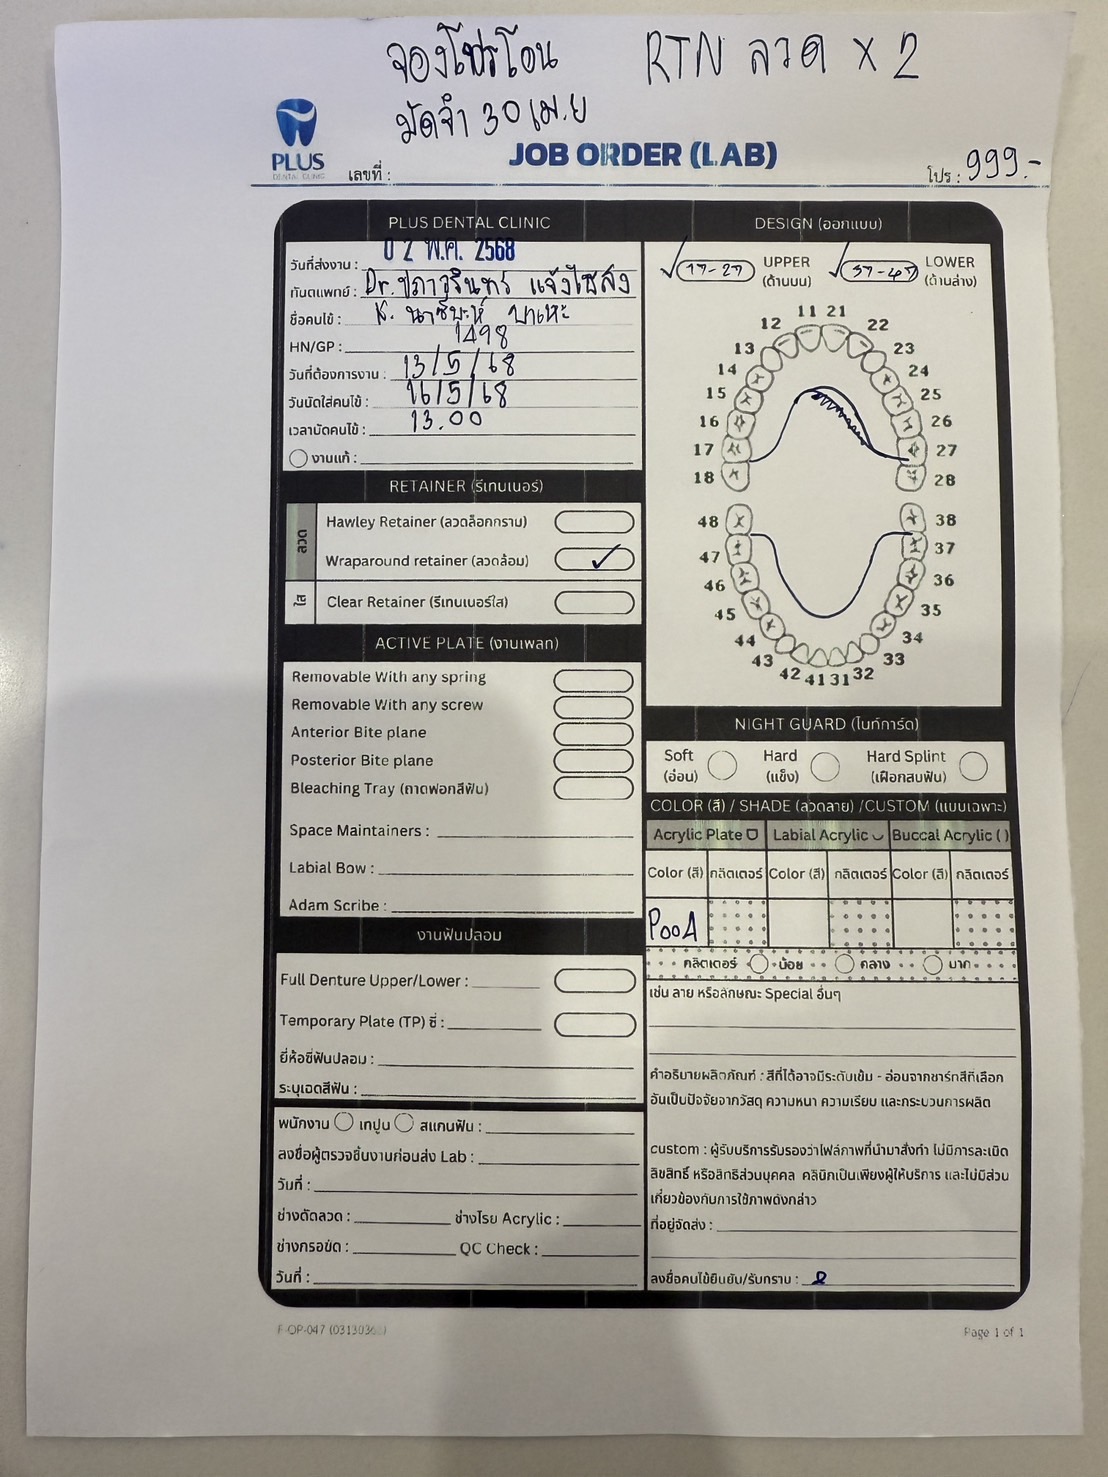 จองโปรโอน RTN ลวด x 2
มัดจำ 30 เม.ย
PLUS
DENTAL CLINIC
JOB ORDER (LAB)
เลขที่ :
โปร : 999.-
PLUS DENTAL CLINIC
วันที่ส่งงาน : 02 พ.ค. 2568
ทันตแพทย์ : Dr.
ชื่อคนไข้ : K.
HN/GP : 1498
วันที่ต้องการงาน : 13/5/68
วันนัดใส่คนไข้ : 16/5/68
เวลานัดคนไข้ : 13.00
งานแก้ :
RETAINER (รีเทนเนอร์)
ลวด
Hawley Retainer (ลวดล็อกกราม)
Wraparound retainer (ลวดล้อม) ✓
ใส
Clear Retainer (รีเทนเนอร์ใส)
ACTIVE PLATE (งานเพลท)
Removable With any spring
Removable With any screw
Anterior Bite plane
Posterior Bite plane
Bleaching Tray (ถาดฟอกสีฟัน)
Space Maintainers :
Labial Bow :
Adam Scribe :
งานฟันปลอม
Full Denture Upper/Lower :
Temporary Plate (TP) ซี่ :
ยี่ห้อซี่ฟันปลอม :
ระบุเฉดสีฟัน :
พนักงาน เทปูน สแกนฟัน :
ลงชื่อผู้ตรวจชิ้นงานก่อนส่ง Lab :
วันที่ :
ช่างดัดลวด : ช่างโรย Acrylic :
ช่างกรอขัด : QC Check :
วันที่ :
DESIGN (ออกแบบ)
✓ 17-27 UPPER ✓ 37-47 LOWER
(ด้านบน) (ด้านล่าง)
11 21
12 22
13 23
14 24
15 25
16 26
17 27
18 28
48 38
47 37
46 36
45 35
44 34
43 33
42 41 31 32
NIGHT GUARD (ไนท์การ์ด)
Soft Hard Hard Splint
(อ่อน) (แข็ง) (เฝือกสบฟัน)
COLOR (สี) / SHADE (ลวดลาย) /CUSTOM (แบบเฉพาะ)
Acrylic Plate Labial Acrylic Buccal Acrylic ( )
Color (สี) กลิตเตอร์ Color (สี) กลิตเตอร์ Color (สี) กลิตเตอร์
P004
กลิตเตอร์ น้อย กลาง มาก
เช่น ลาย หรือลักษณะ Special อื่นๆ
คำอธิบายผลิตภัณฑ์ : สีที่ได้อาจมีระดับเข้ม - อ่อนจากชาร์ทสีที่เลือก
อันเป็นปัจจัยจากวัสดุ ความหนา ความเรียบ และกระบวนการผลิต
custom : ผู้รับบริการรับรองว่าไฟล์ภาพที่นำมาสั่งทำ ไม่มีการละเมิด
ลิขสิทธิ์ หรือสิทธิส่วนบุคคล คลินิกเป็นเพียงผู้ให้บริการ และไม่มีส่วน
เกี่ยวข้องกับการใช้ภาพดังกล่าว
ที่อยู่จัดส่ง :
ลงชื่อคนไข้ยืนยัน/รับทราบ :
Page 1 of 1